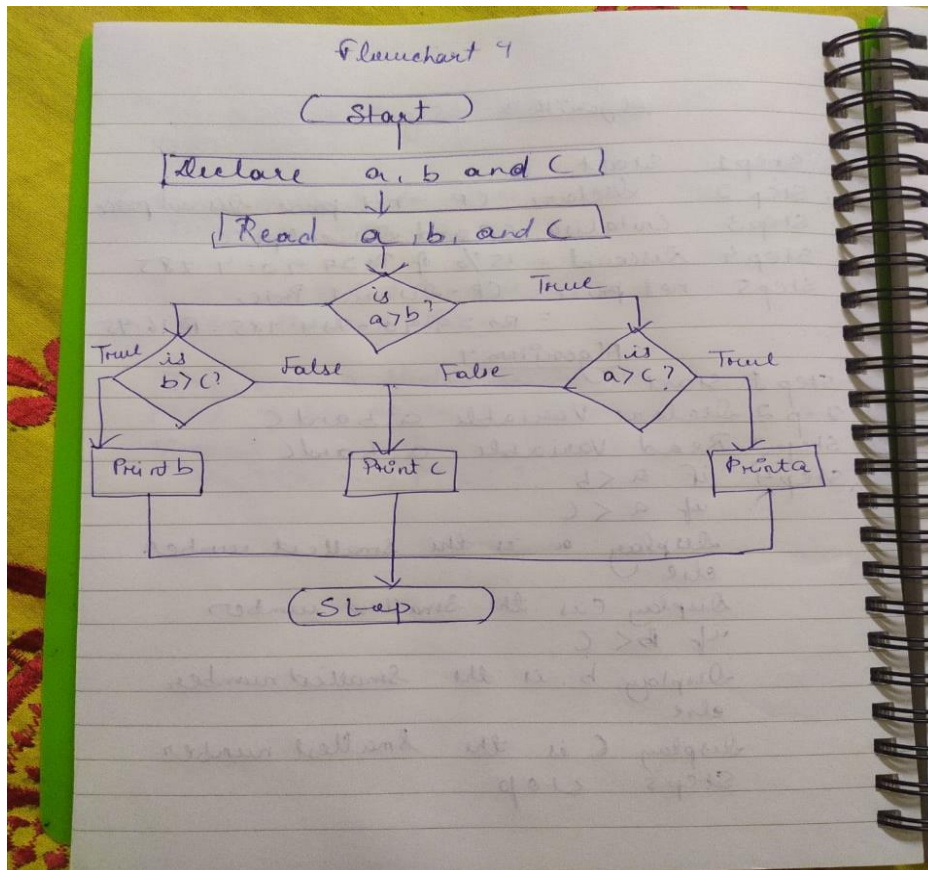 Flowchart 4
Start
Declare a, b and C
Read a, b, and C
is a>b?
True
True
is b>C?
False
False
is a>C?
True
Print b
Print c
Print a
Stop